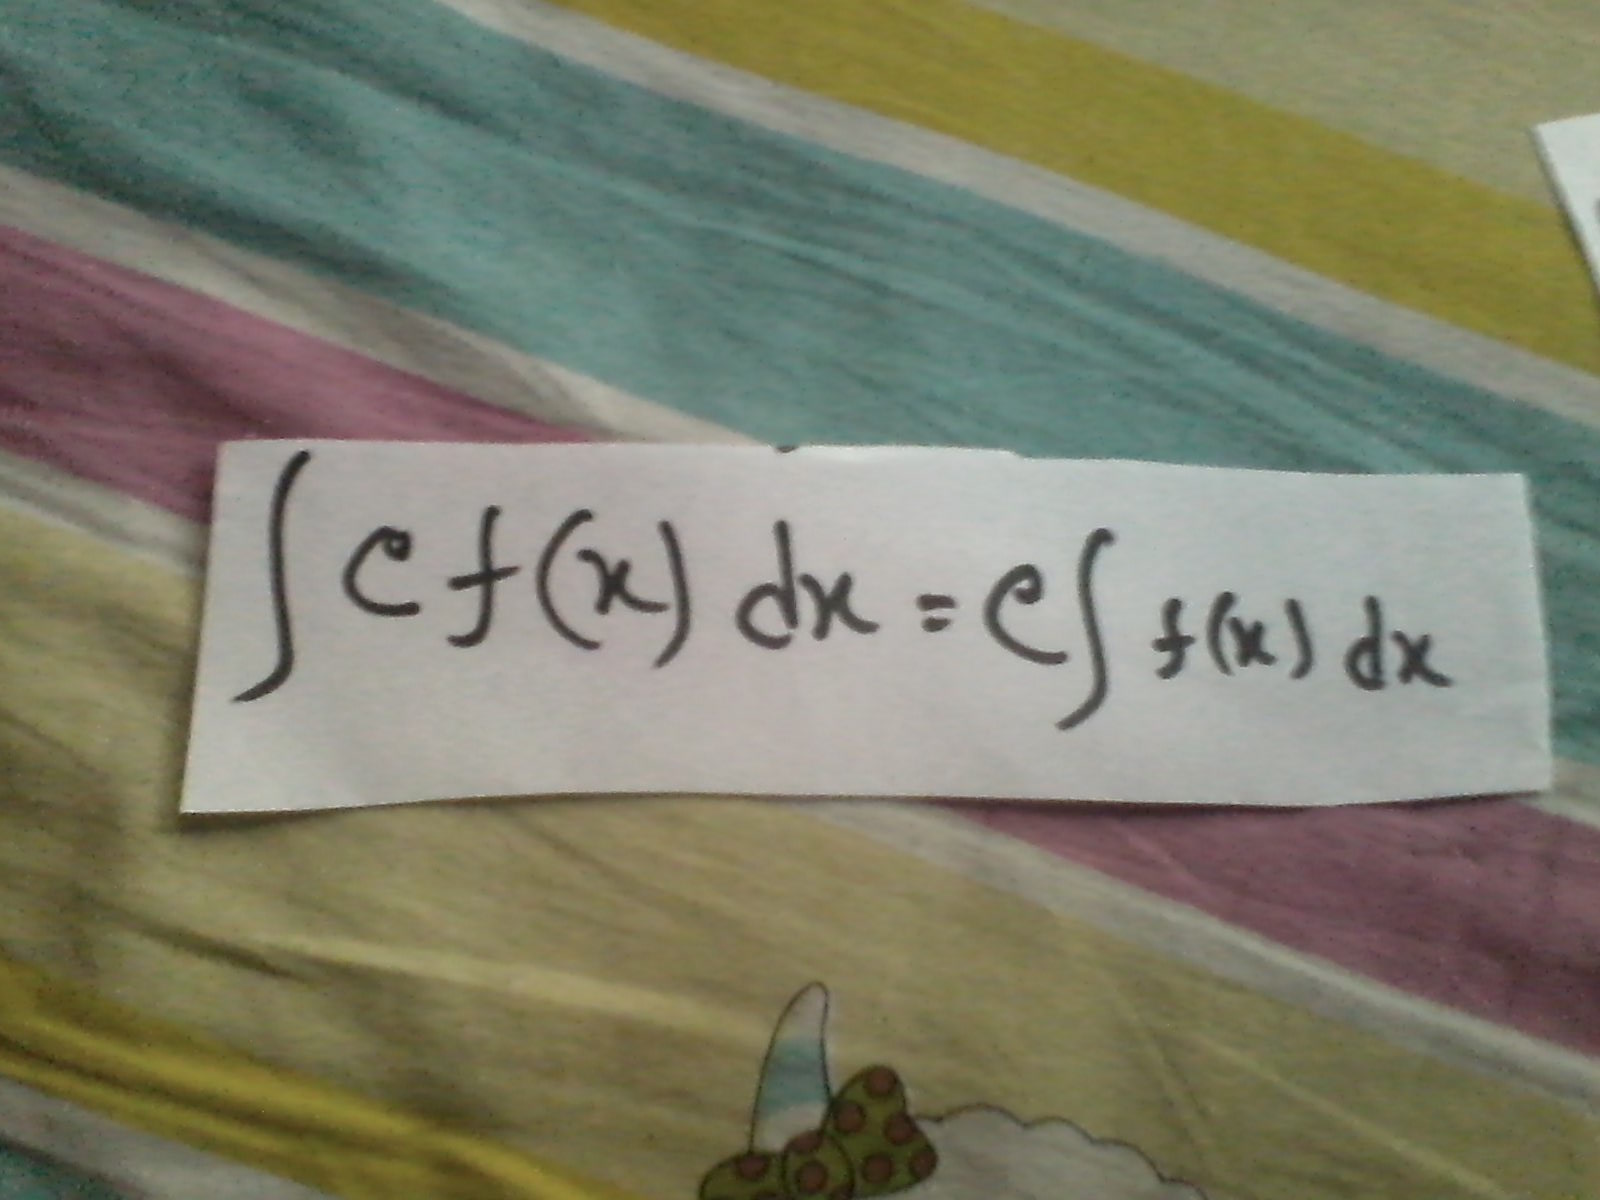 ∫ c f(x) dx = c ∫ f(x) dx